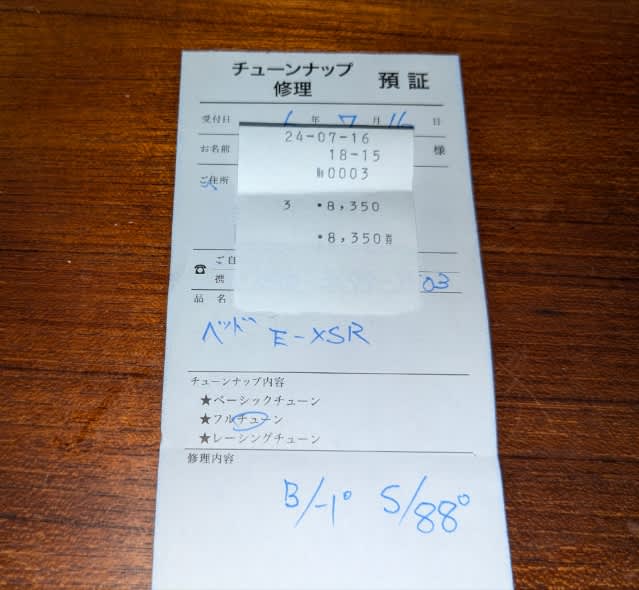 チューンナップ
修理
預証
受付日 6 年 7 月 16 日
お名前 様
24-07-16
18-15
№0003
ご住所
3 •8,350
•8,350
☎ ご自
携 03
品名
ヘッド E-XSR
チューンナップ内容
★ベーシックチューン
★フルチューン
★レーシングチューン
修理内容
B/-1° S/88°